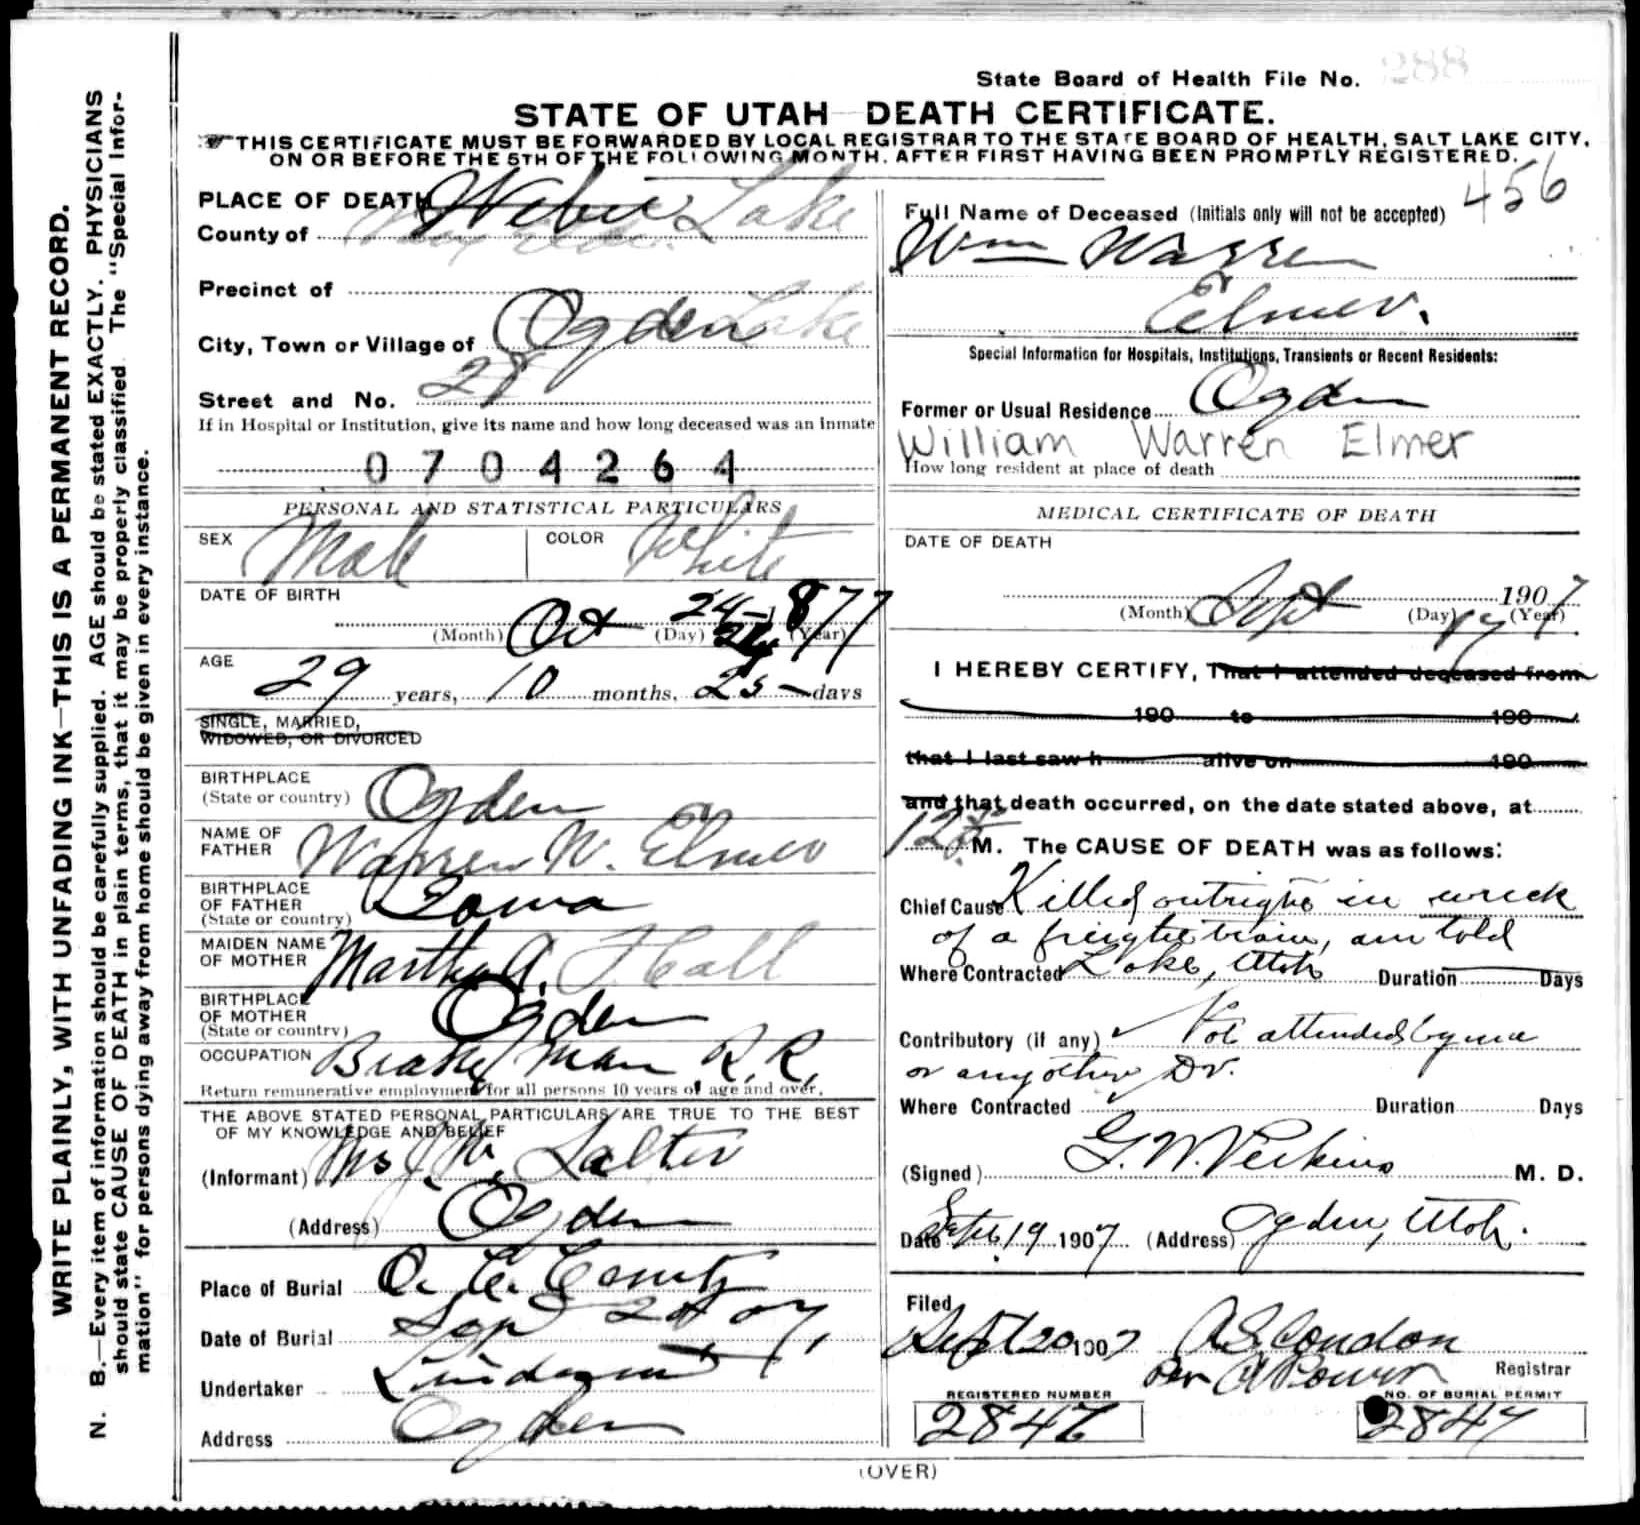 State Board of Health File No. 288
STATE OF UTAH—DEATH CERTIFICATE.
THIS CERTIFICATE MUST BE FORWARDED BY LOCAL REGISTRAR TO THE STATE BOARD OF HEALTH, SALT LAKE CITY,
ON OR BEFORE THE 5TH OF THE FOLLOWING MONTH, AFTER FIRST HAVING BEEN PROMPTLY REGISTERED.
WRITE PLAINLY, WITH UNFADING INK—THIS IS A PERMANENT RECORD.
N. B.—Every item of information should be carefully supplied. AGE should be stated EXACTLY. PHYSICIANS
should state CAUSE OF DEATH in plain terms, that it may be properly classified. The "Special Infor-
mation" for persons dying away from home should be given in every instance.
PLACE OF DEATH
County of Weber Lake
Precinct of
City, Town or Village of Ogden Lake
Street and No. 28
If in Hospital or Institution, give its name and how long deceased was an inmate
0704264
PERSONAL AND STATISTICAL PARTICULARS
SEX Male COLOR White
DATE OF BIRTH
(Month) Oct (Day) 24 (Year) 1877
AGE
29 years, 10 months, 25 days
SINGLE, MARRIED,
WIDOWED, OR DIVORCED
BIRTHPLACE
(State or country) Ogden
NAME OF
FATHER Warren W. Elmer
BIRTHPLACE
OF FATHER
(State or country) Iowa
MAIDEN NAME
OF MOTHER Martha A. Hall
BIRTHPLACE
OF MOTHER
(State or country) Ogden
OCCUPATION Brake man R.R.
Return remunerative employment for all persons 10 years of age and over.
THE ABOVE STATED PERSONAL PARTICULARS ARE TRUE TO THE BEST
OF MY KNOWLEDGE AND BELIEF
(Informant) Mrs J. W. Salter
(Address) Ogden
Place of Burial O. C. Cemty
Date of Burial Sep 07
Undertaker
Address Ogden
456
Full Name of Deceased (Initials only will not be accepted)
Wm Warren
Elmer.
Special Information for Hospitals, Institutions, Transients or Recent Residents:
Former or Usual Residence Ogden
William Warren Elmer
How long resident at place of death
MEDICAL CERTIFICATE OF DEATH
DATE OF DEATH
1907
(Month) Sept (Day) 17 (Year)
I HEREBY CERTIFY, That I attended deceased from
190 to 190
that I last saw h alive on 190
and that death occurred, on the date stated above, at
12 M. The CAUSE OF DEATH was as follows:
Chief Cause Killed outright in wreck
of a freight train, am told
Where Contracted Lake, Utah Duration Days
Contributory (if any) Not attended by me
or any other Dr.
Where Contracted Duration Days
(Signed) G. W. Perkins M. D.
Date Sept. 19 1907 (Address) Ogden, Utah.
Filed
Sept 20 1907 Condon
Per Registrar
REGISTERED NUMBER NO. OF BURIAL PERMIT
2847
(OVER)